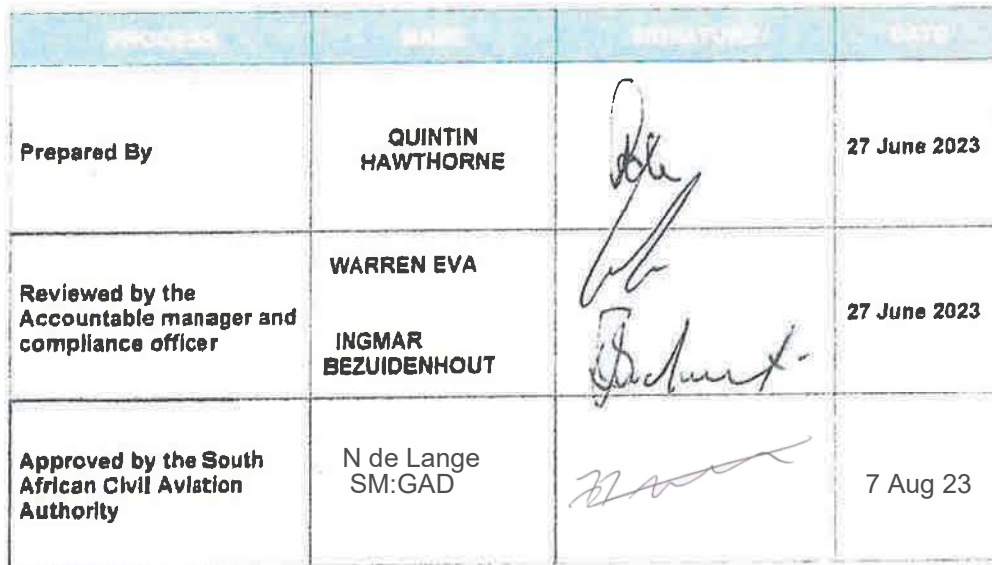 PROCESS NAME SIGNATURE DATE
Prepared By
QUINTIN
HAWTHORNE
27 June 2023
Reviewed by the
Accountable manager and
compliance officer
WARREN EVA
INGMAR
BEZUIDENHOUT
27 June 2023
Approved by the South
African Civil Aviation
Authority
N de Lange
SM:GAD
7 Aug 23